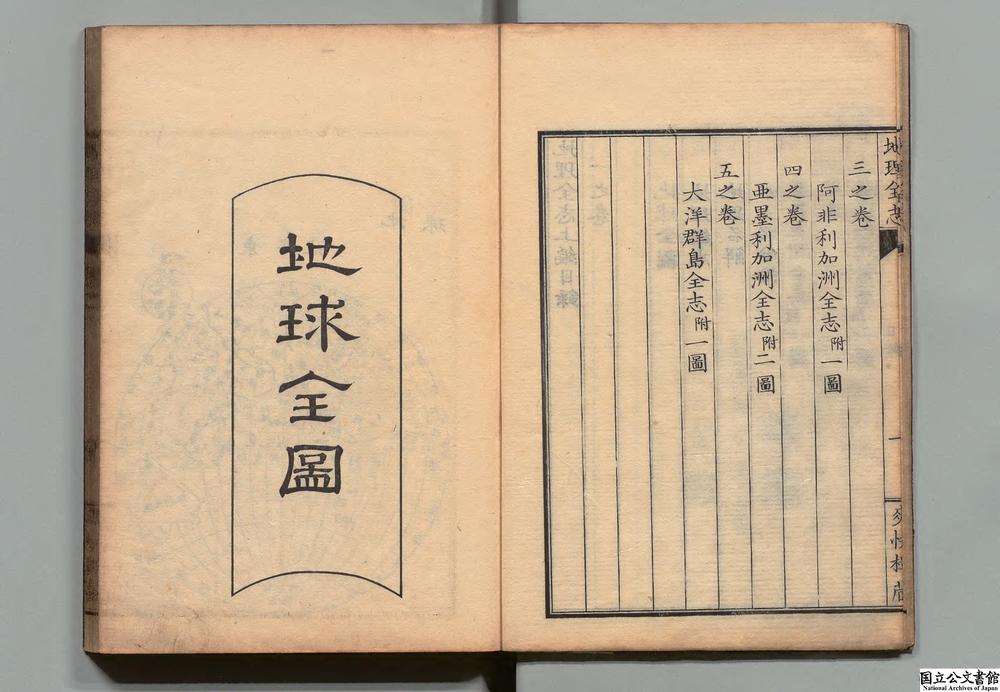 三之卷
阿非利加洲全志附一圖
四之卷
亜墨利加洲全志附二圖
五之卷
大洋群島全志附一圖
地理全志
一
地球全圖
国立公文書館
National Archives of Japan